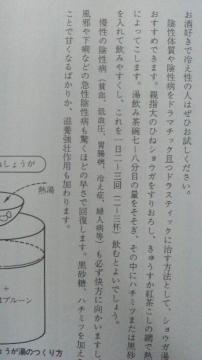 お酒好きで冷え性の人はぜひお試しください。
陰性体質や陰性病をドラマチック且つドラスティックに治す方法として、ショウガ湯
おすすめできます。親指大のひねショウガをすりおろし、きゅうすか紅茶こしの網で熱
によってこします。湯飲み茶碗七〜八分目の量をそそぎ、その中にハチミツまたは黒砂
を入れて飲みやすくし、これを一日二〜三回（二〜三杯）飲むとよいでしょう。
慢性の陰性病（貧血、低血圧、胃腸病、冷え症、婦人病等）も必ず快方に向かいますし
風邪や下痢などの急性陰性病も驚くほどの早さで回復します。黒砂糖、ハチミツを加え
ことで甘くなるばかりか、滋養強壮作用も加わります。
しょうが
熱湯
＋
プルーン
ょうが湯のつくり方